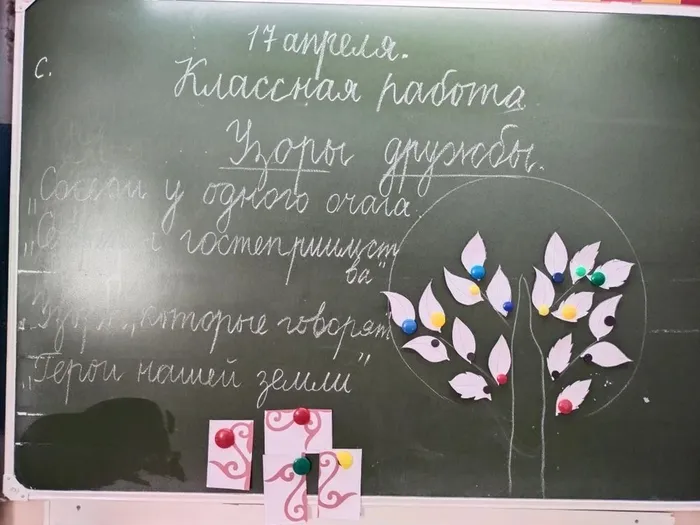 17 апреля.
с.
Классная работа
Узоры дружбы.
у одного очага
гостеприимст
ва"
которые говорят
„Герои нашей земли"